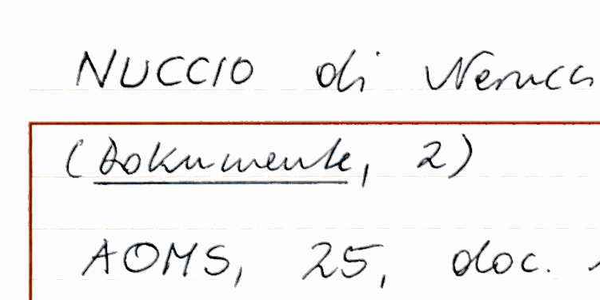 NUCCIO di Nerucci
(Dokumente, 2)
AOMS, 25, doc.